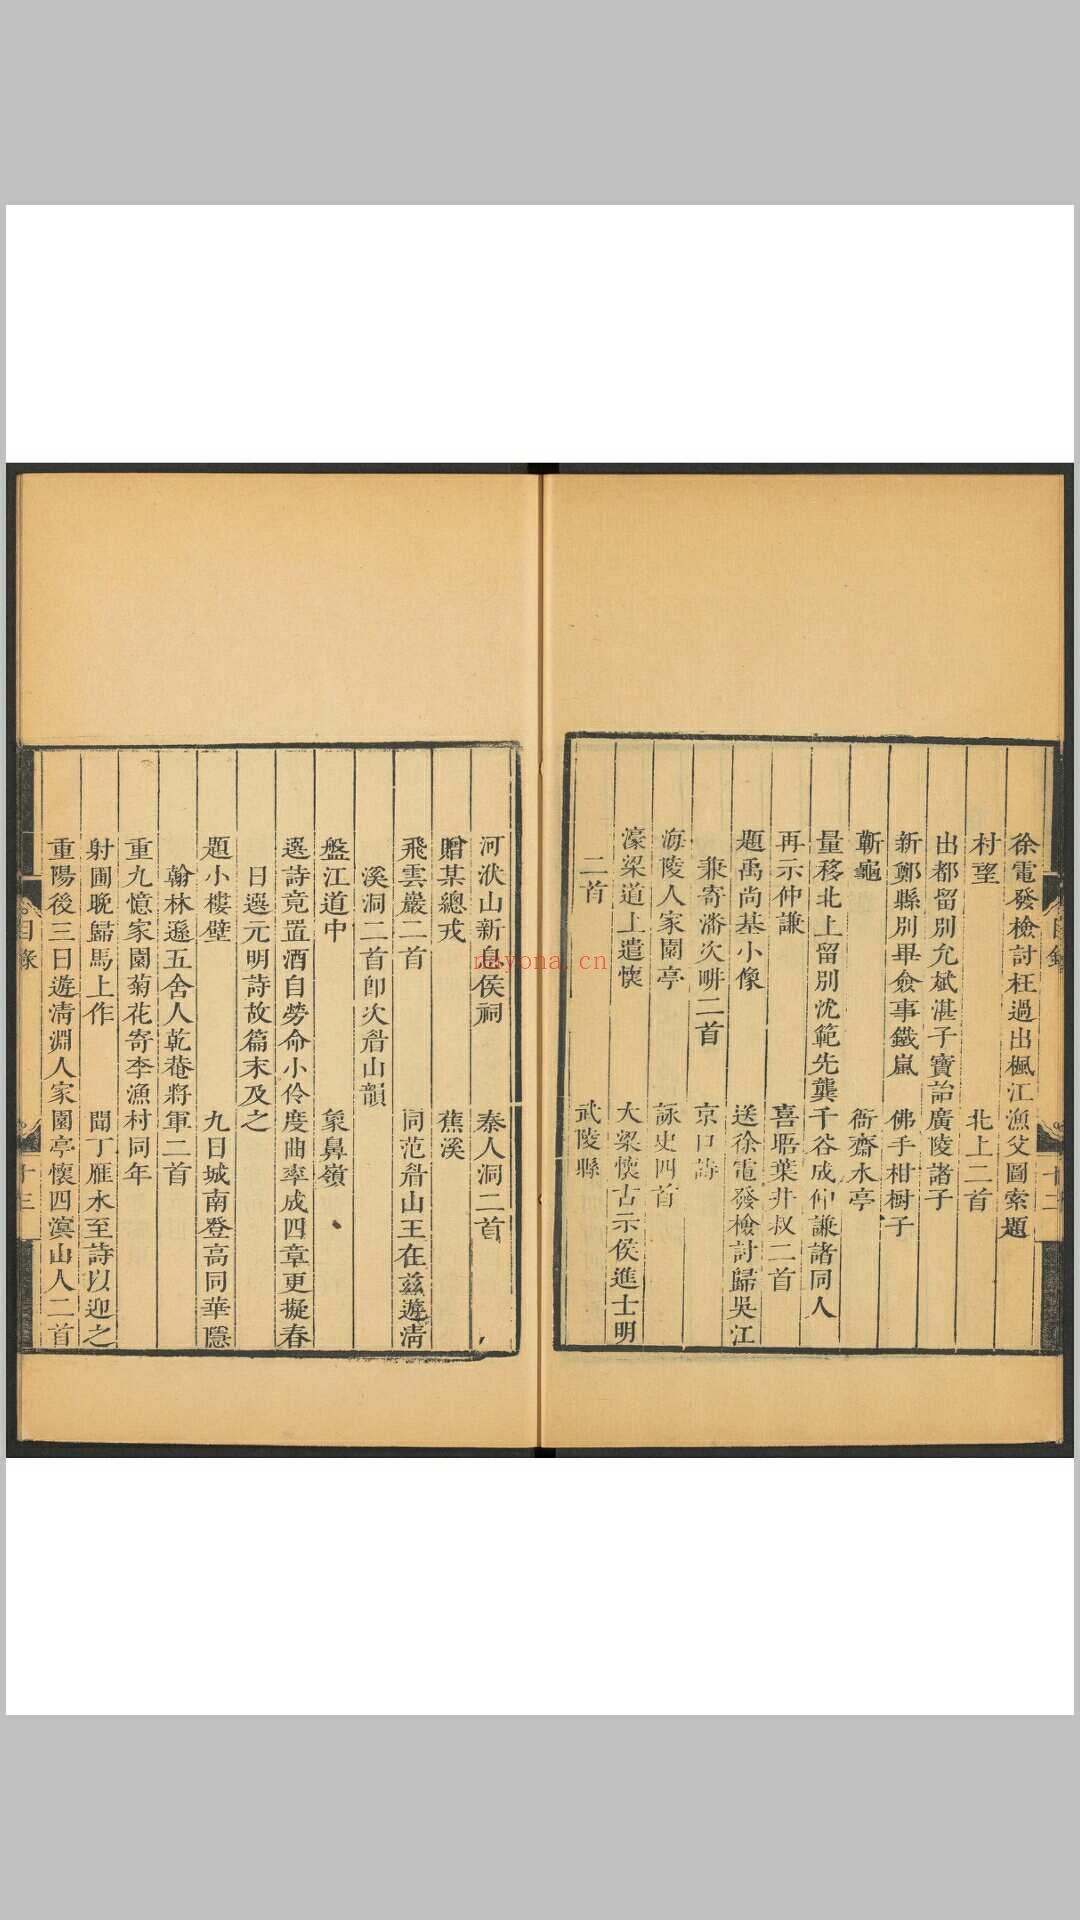 徐電發檢討枉過出楓江漁父圖索題
村望　北上二首
出都留別允斌湛子寶詒廣陵諸子
新鄭縣別畢僉事鐵嵐　佛手柑橱子
蘄龜　衙齋水亭
量移北上留別沈範先龔千谷成仲謙諸同人
再示仲謙　喜晤葉井叔二首
題禹尚基小像　送徐電發檢討歸吳江
兼寄潘次畊二首　京口
海陵人家園亭　詠史四首
濠梁道上遣懷　大梁懷古示侯進士明
二首　武陵縣
目錄　十二
河洑山新息侯祠　秦人洞二首
贈某總戎　蕉溪
飛雲巖二首　同范眘山王在茲遊清
溪洞二首卽次眘山韻
盤江道中　象鼻嶺
選詩竟置酒自勞命小伶度曲率成四章更擬春
日選元明詩故篇末及之
題小樓壁　九日城南登高同華隱
翰林遜五舍人乾菴將軍二首
重九憶家園菊花寄李漁村同年
射圃晚歸馬上作　聞丁雁水至詩以迎之
重陽後三日遊清淵人家園亭懷四溟山人二首
目錄　十三
nayona.cn